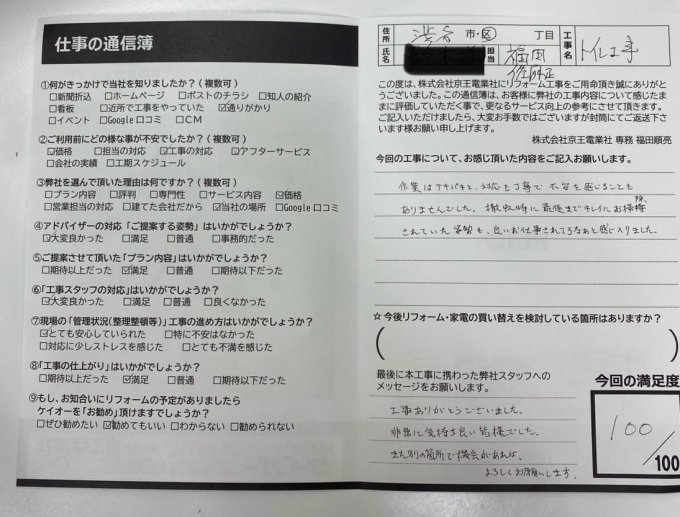 仕事の通信簿
①何がきっかけで当社を知りましたか?(複数可)
□新聞折込 □ホームページ □ポストのチラシ □知人の紹介
□看板 □近所で工事をやっていた ☑通りがかり
□イベント □Google口コミ □CM
②ご利用前にどのような事が不安でしたか?(複数可)
☑価格 □担当の対応 ☑工事の対応 ☑アフターサービス
□会社の実績 □工期スケジュール
③弊社を選んで頂いた理由は何ですか?(複数可)
□プラン内容 □評判 □専門性 □サービス内容 ☑価格
□営業担当の対応 □建てた会社だから ☑当社の場所 □Google口コミ
④アドバイザーの対応「ご提案する姿勢」はいかがでしょうか?
☑大変良かった □満足 □普通 □事務的だった
⑤ご提案させて頂いた「プラン内容」はいかがでしょうか?
□期待以上だった ☑満足 □普通 □期待以下だった
⑥「工事スタッフの対応」はいかがでしょうか?
☑大変良かった □満足 □普通 □良くなかった
⑦現場の「管理状況(整理整頓等)」工事の進め方はいかがでしょうか?
☑とても安心していられた □特に不安はなかった
□対応に少しストレスを感じた □とても不満を感じた
⑧「工事の仕上がり」はいかがでしょうか?
□期待以上だった ☑満足 □普通 □期待以下だった
⑨もし、お知合いにリフォームの予定がありましたら
ケイオーを「お勧め」頂けますでしょうか?
□ぜひ勧めたい ☑勧めてもいい □わからない □勧められない
住所 渋谷 市・区 丁目
氏名 担当 福田
工事名 トイレ工事
この度は、株式会社京王電業社にリフォーム工事をご用命頂き誠にありがと
うございました。この通信簿は、お客様に弊社の工事内容について感じたま
まに評価していただく事で、更なるサービス向上の参考にさせて頂きます。
ご記入いただけましたら、大変お手数ではございますが封筒にてご返送下さ
います様お願い申し上げます。
株式会社京王電業社 専務 福田順亮
今回の工事について、お感じ頂いた内容をご記入お願いします。
作業はテキパキと、対応も丁寧で不安を感じることも
ありませんでした。撤収時に最後までキレイにお掃除
されていた姿勢も、良いお仕事されてるなあと感じ入りました。
☆今後リフォーム・家電の買い替えを検討している箇所はありますか?
( )
最後に本工事に携わった弊社スタッフへの
メッセージをお願いします。
工事ありがとうございました。
非常に気持ち良い皆様でした。
また別の箇所で機会があれば、
よろしくお願いします。
今回の満足度
100
/100